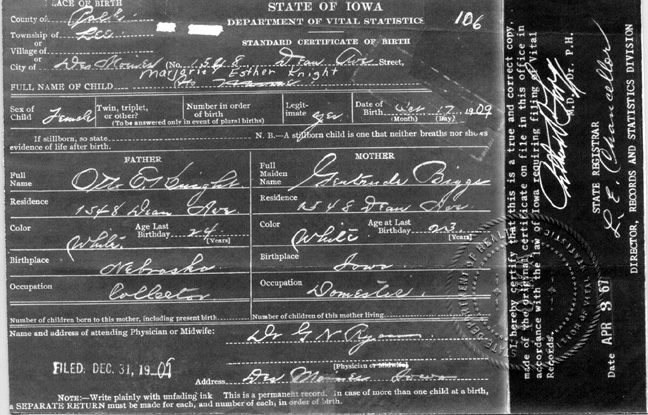 PLACE OF BIRTH
STATE OF IOWA
County of Polk
DEPARTMENT OF VITAL STATISTICS
106
Township of Lee
or
Village of
STANDARD CERTIFICATE OF BIRTH
or
City of Des Moines (No. 1548 Dean Ave Street,
Marjorie Esther Knight
FULL NAME OF CHILD No Name
Sex of Child Female
Twin, triplet, or other?
(To be answered only in event of plural births)
Number in order of birth
Legitimate yes
Date of Birth Oct 17 1909
(Month) (Day)
If stillborn, so state
N. B.—A stillborn child is one that neither breathes nor shows
evidence of life after birth.
FATHER
MOTHER
Full Name Otto E Knight
Full Maiden Name Gertrude Biggs
Residence 1548 Dean Ave
Residence 1548 Dean Ave
Color White
Age Last Birthday 24 (Years)
Color White
Age at Last Birthday (Years)
Birthplace Nebraska
Birthplace Iowa
Occupation Collector
Occupation Domestic
Number of children born to this mother, including present birth
Number of children of this mother living.
Name and address of attending Physician or Midwife:
Dr G N Ryan
(Physician or Midwife)
FILED. DEC. 31, 1909
Address Des Moines Iowa
NOTE:—Write plainly with unfading ink This is a permanent record. In case of more than one child at a birth,
a SEPARATE RETURN must be made for each, and number of each, in order of birth.
I hereby certify that this is a true and correct copy,
made of the original certificate on file in this office in
accordance with the law of Iowa requiring filing of Vital
Records.
M.D., Dr. P.H.
STATE REGISTRAR
L. E. Chancellor
DIRECTOR, RECORDS AND STATISTICS DIVISION
Date APR 3 67